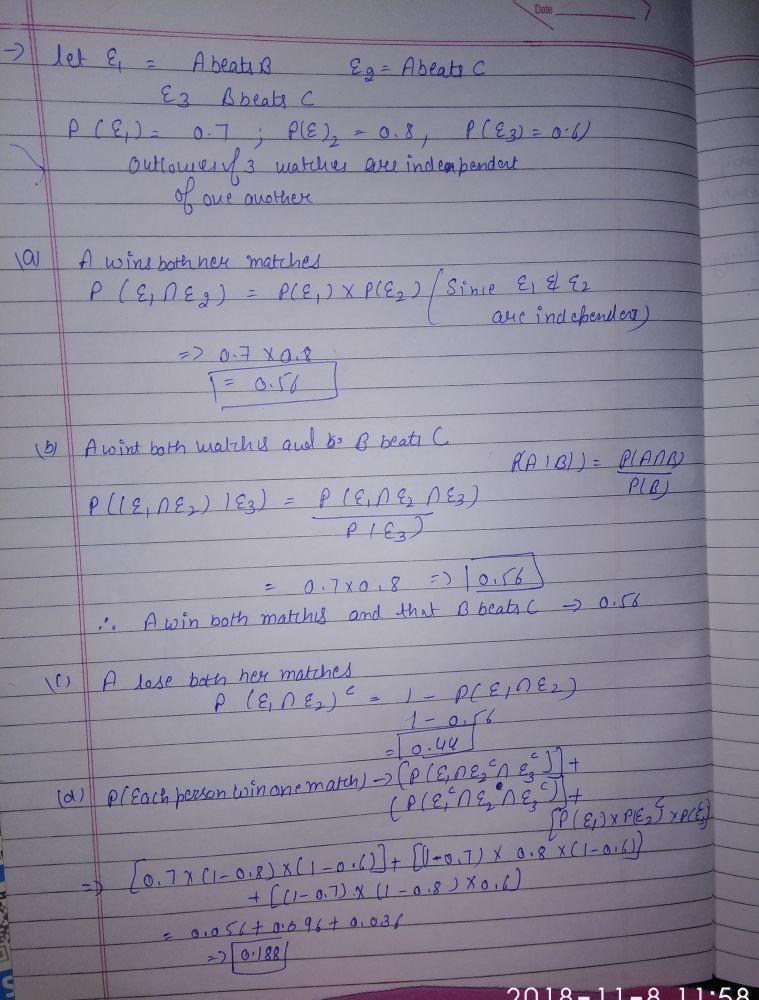 Date
→ let ε₁ = A beats B ε₂ = A beats C
ε3 B beats C
P(ε₁) = 0.7 ; P(ε)₂ = 0.8, P(ε3) = 0.6)
Outcomes of 3 matches are independent
of one another
(a) A wins both her matches
P (ε₁ ∩ ε₂) = P(ε₁) × P(ε₂) (Since ε₁ & ε₂
are independent)
=> 0.7 × 0.8
= 0.56
(b) A wint both matches and B beats C
P(A|B)) = P(A∩B)
P(B)
P((ε₁ ∩ ε₂) | ε3) = P(ε₁ ∩ ε₂ ∩ ε3)
P(ε3)
= 0.7 × 0.8 => 0.56
∴ A win both matches and that B beats C → 0.56
(c) A lose both her matches
P (ε₁ ∩ ε₂)ᶜ = 1 - P(ε₁ ∩ ε₂)
1 - 0.56
= 0.44
(d) P(Each person win one match) → [P(ε₁ ∩ ε₂ᶜ ∩ ε3ᶜ)] +
(P(ε₁ᶜ ∩ ε₂ ∩ ε3ᶜ)] +
[P(ε₁) × P(ε₂)ᶜ × P(ε3)
=> [0.7 × (1-0.8) × (1-0.6)] + [(1-0.7) × 0.8 × (1-0.6)]
+ [(1-0.7) × (1-0.8) × 0.6)
= 0.056 + 0.096 + 0.036
=> 0.188
2018-11-8 11:58